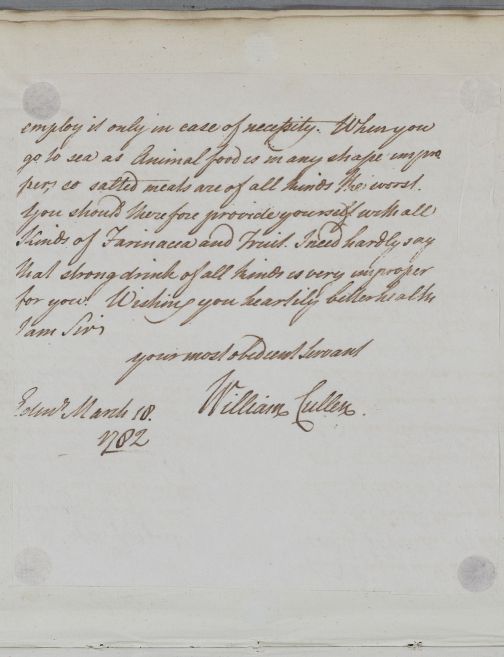 employ it only in case of necessity. When you
go to sea as Animal food is in any shape impro
per, so salted meats are of all kinds the worst.
You should therefore provide yourself with all
Kinds of Farinacea and Fruit. I need hardly say
that strong drink of all kinds is very improper
for you. Wishing you heartily better health
I am Sir
your most obedient servant
Edinr March 18. William Cullen.
1782